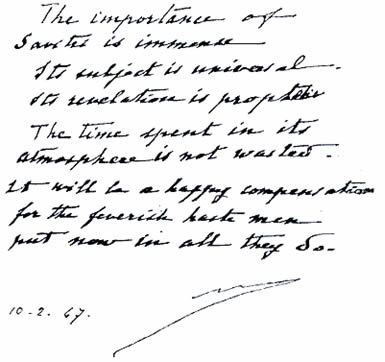 The importance of
Savitri is immense
Its subject is universal.
Its revelation is prophetic
The time spent in its
atmosphere is not wasted.
It will be a happy compensation
for the feverish haste men
put now in all they do.
10-2.67.